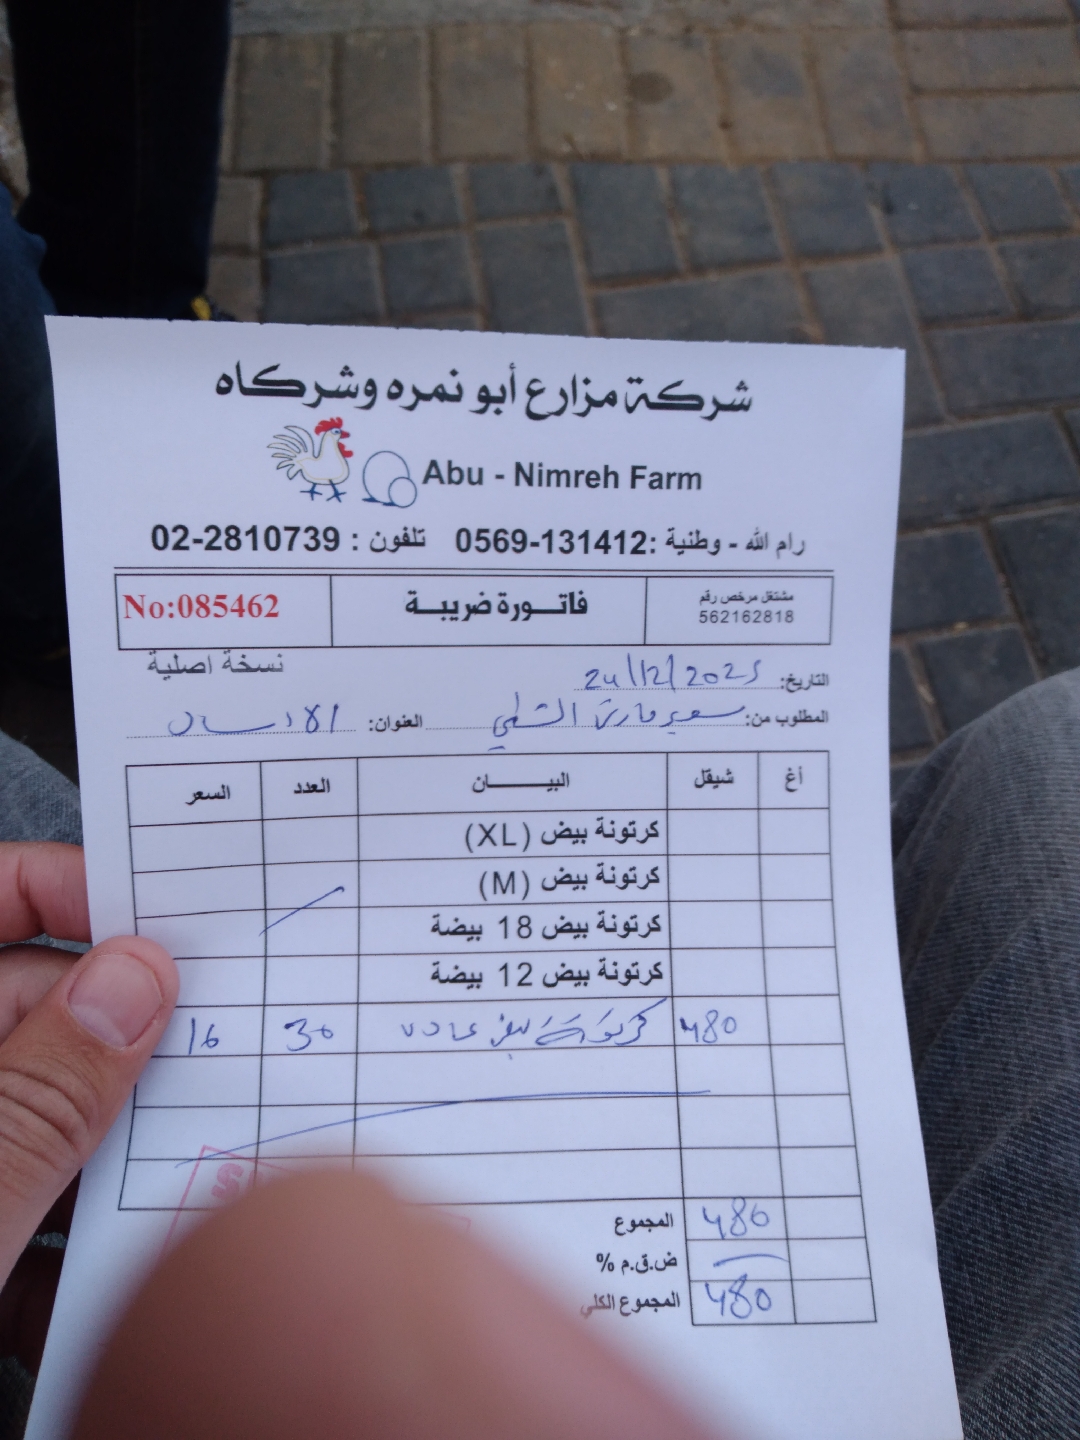 شركة مزارع أبو نمره وشركاه
Abu - Nimreh Farm
رام الله - وطنية :0569-131412 تلفون : 02-2810739
مشتغل مرخص رقم
562162818
فاتورة ضريبة
No:085462
نسخة اصلية
التاريخ: 24/12/2025
المطلوب من: سوبر ماركت
العنوان:
أغ شيقل البيـــــان العدد السعر
كرتونة بيض (XL)
كرتونة بيض (M)
كرتونة بيض 18 بيضة
كرتونة بيض 12 بيضة
480 كرتونة بيض عادي 30 16
المجموع 480
ض.ق.م %
المجموع الكلي 480